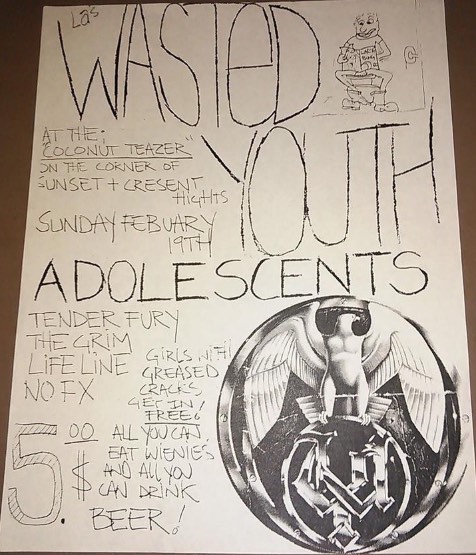 LAS
WASTED
YOUTH
AT THE;
"COCONUT TEAZER"
ON THE CORNER OF
SUNSET + CRESENT
HIGHTS
SUNDAY FEBUARY
19TH
ADOLESCENTS
TENDER FURY
THE GRIM
LIFELINE
NOFX
GIRLS WITH
GREASED
CRACKS
GET IN
FREE!
5.00
$
ALL YOU CAN
EAT WIENIES
AND ALL YOU
CAN DRINK
BEER!